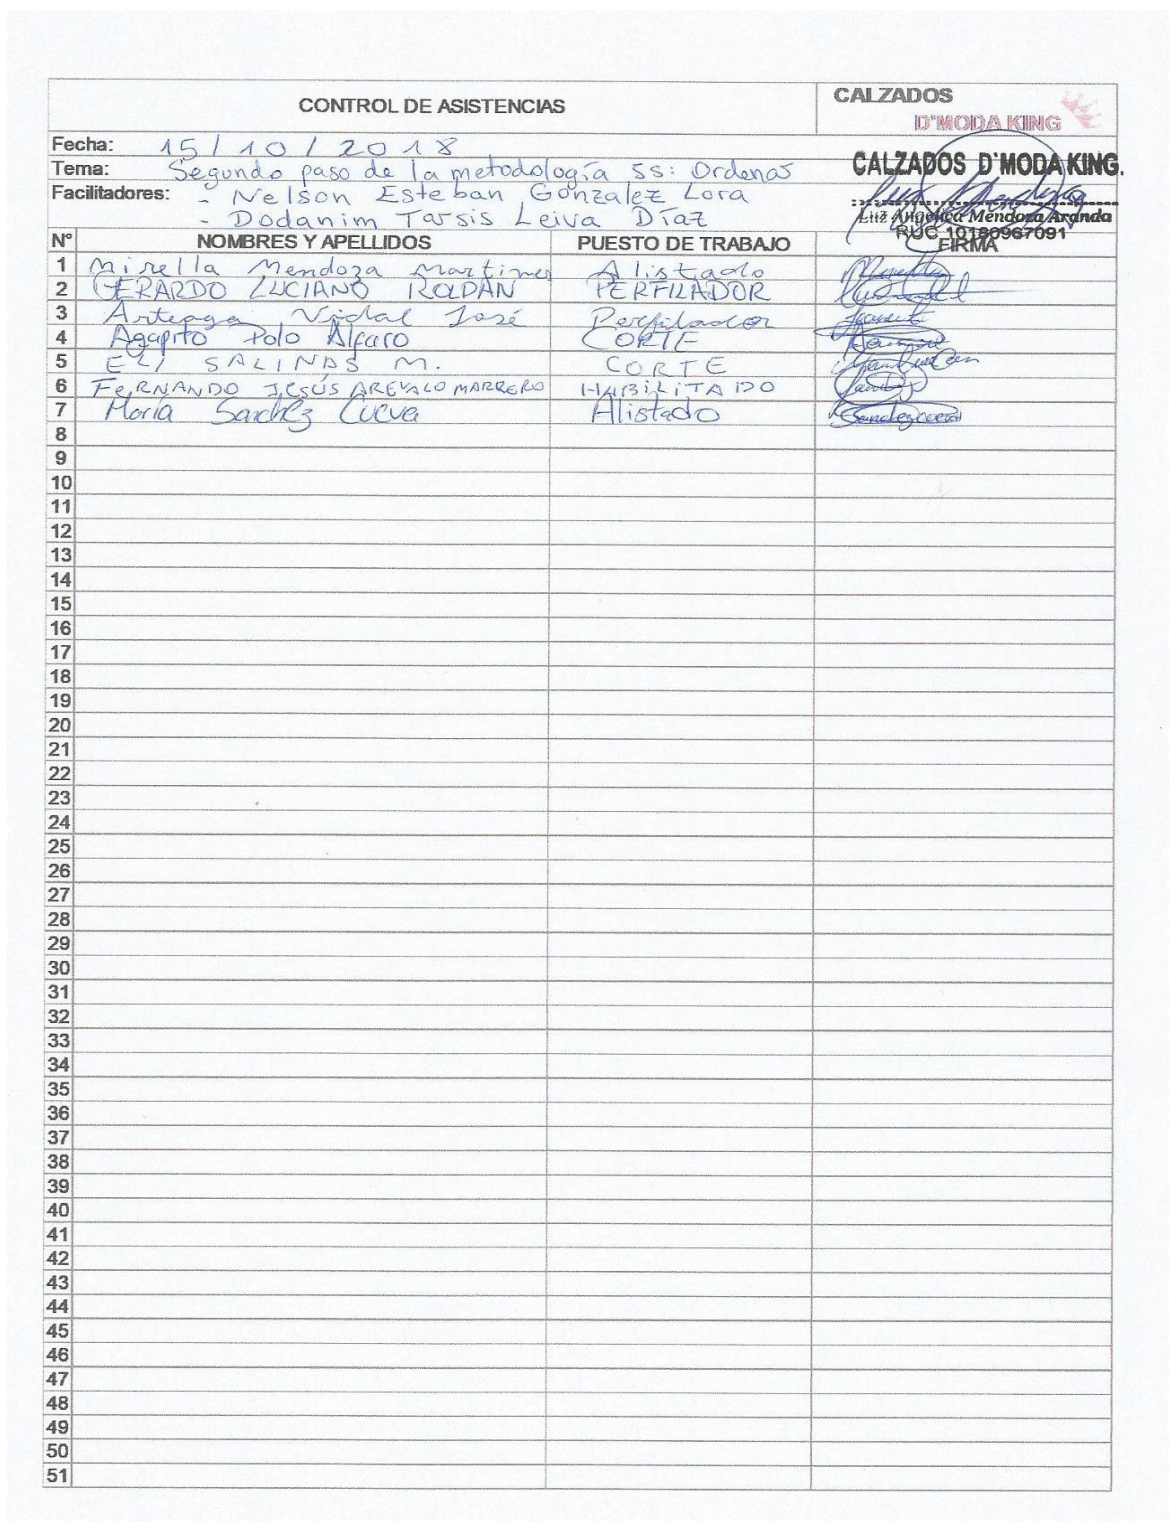 CONTROL DE ASISTENCIAS
CALZADOS
D'MODA KING
Fecha: 15/10/2018
Tema: Segundo paso de la metodología 5s: Ordenar
Facilitadores: - Nelson Esteban Gonzalez Lora
- Dodanim Tarsis Leiva Díaz
CALZADOS D'MODA KING.
Luz Angelica Mendoza Aranda
RUC 10180967091
N° NOMBRES Y APELLIDOS PUESTO DE TRABAJO FIRMA
1 Mirella Mendoza Martinez Alistado
2 GERARDO LUCIANO ROLDAN PERFILADOR
3 Arteaga Vidal José Perfilador
4 Agapito Polo Alfaro CORTE
5 ELI SALINAS M. CORTE
6 FERNANDO JESÚS AREVALO MARRERO HABILITADO
7 María Sanchez Cueva Alistado Sanchez
8
9
10
11
12
13
14
15
16
17
18
19
20
21
22
23
24
25
26
27
28
29
30
31
32
33
34
35
36
37
38
39
40
41
42
43
44
45
46
47
48
49
50
51